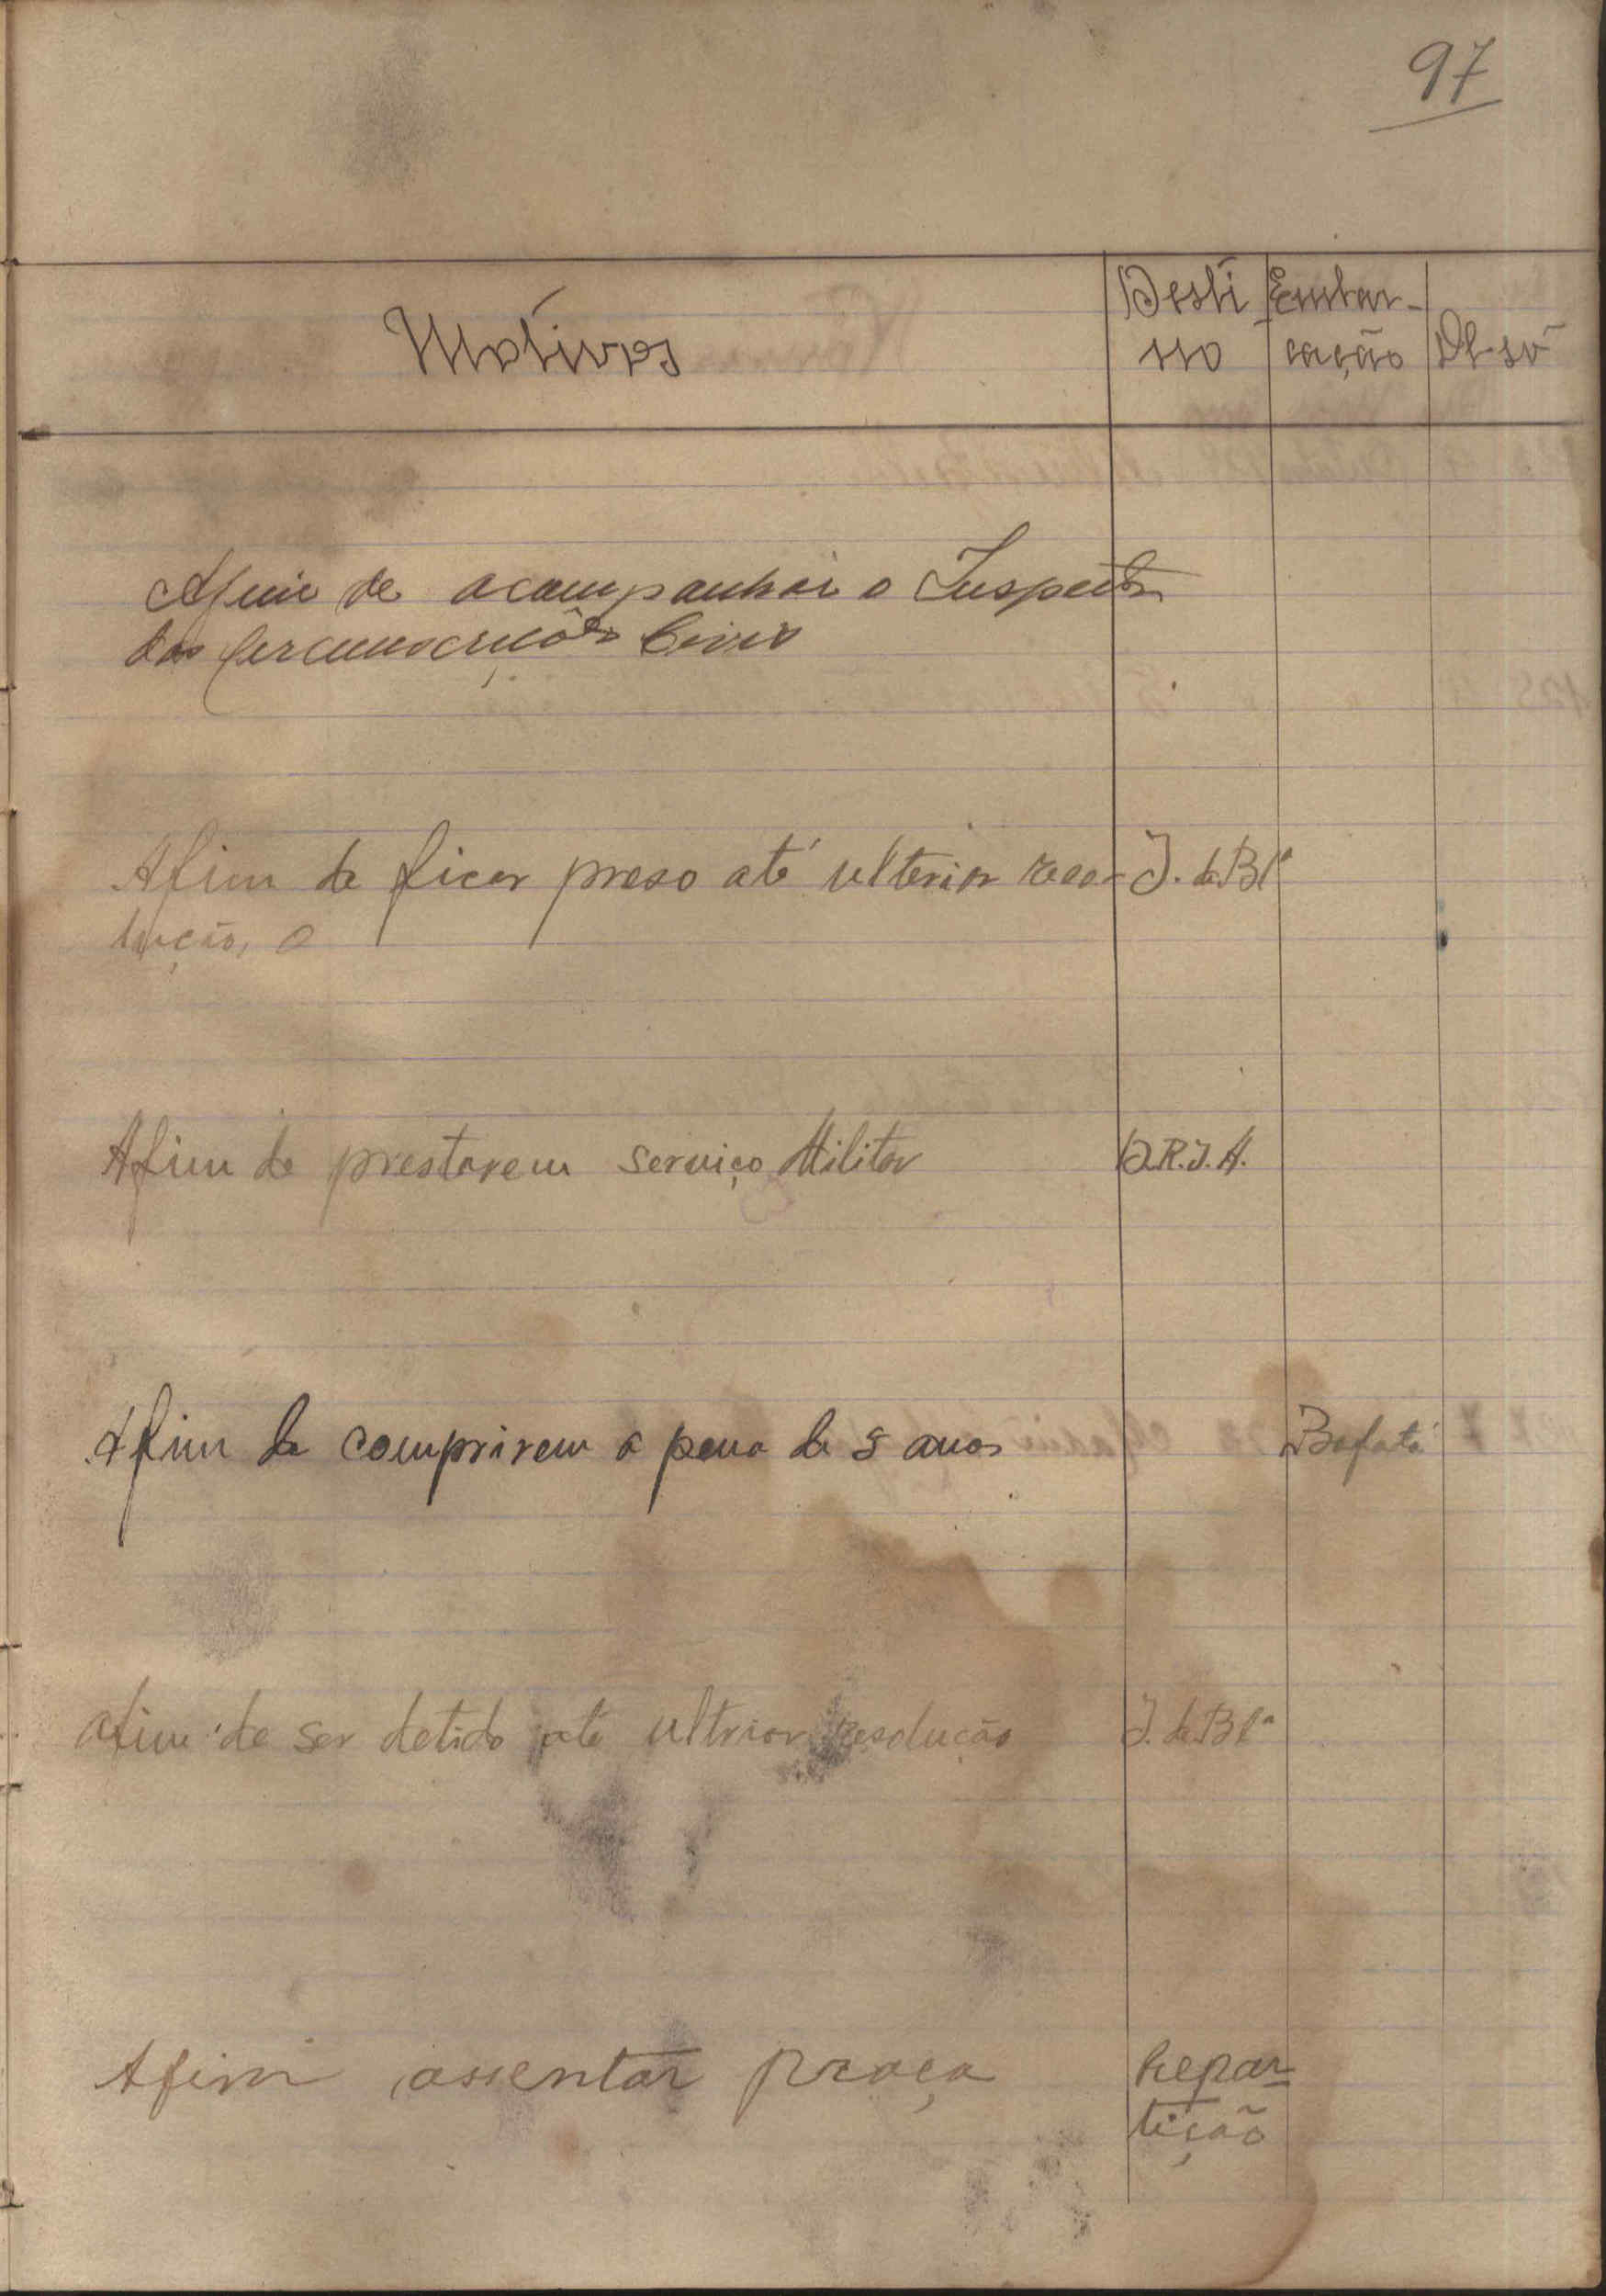 97
Motivos
Desti-
no
Embar-
cação
Obsõ
Afim de acompanhar o Inspector
das Circunscrições Civis
Afim de ficar preso até ulterior reso-
lução, o
I. de Blª
Afim de prestarem serviço Militar
D.R.I.A.
Afim de comprirem a pena de 3 anos
Bafatá
Afim de ser detido até ultrior resolução
I. de Blª
Afim assentar praça
Repar-
tição